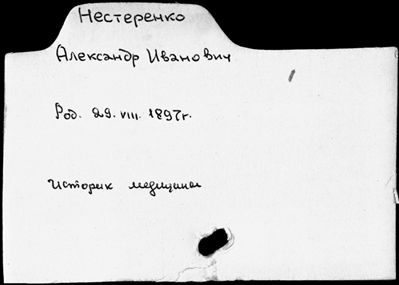 Нестеренко
Александр Иванович
Род. 29. VIII. 1897г.
Историк медицины